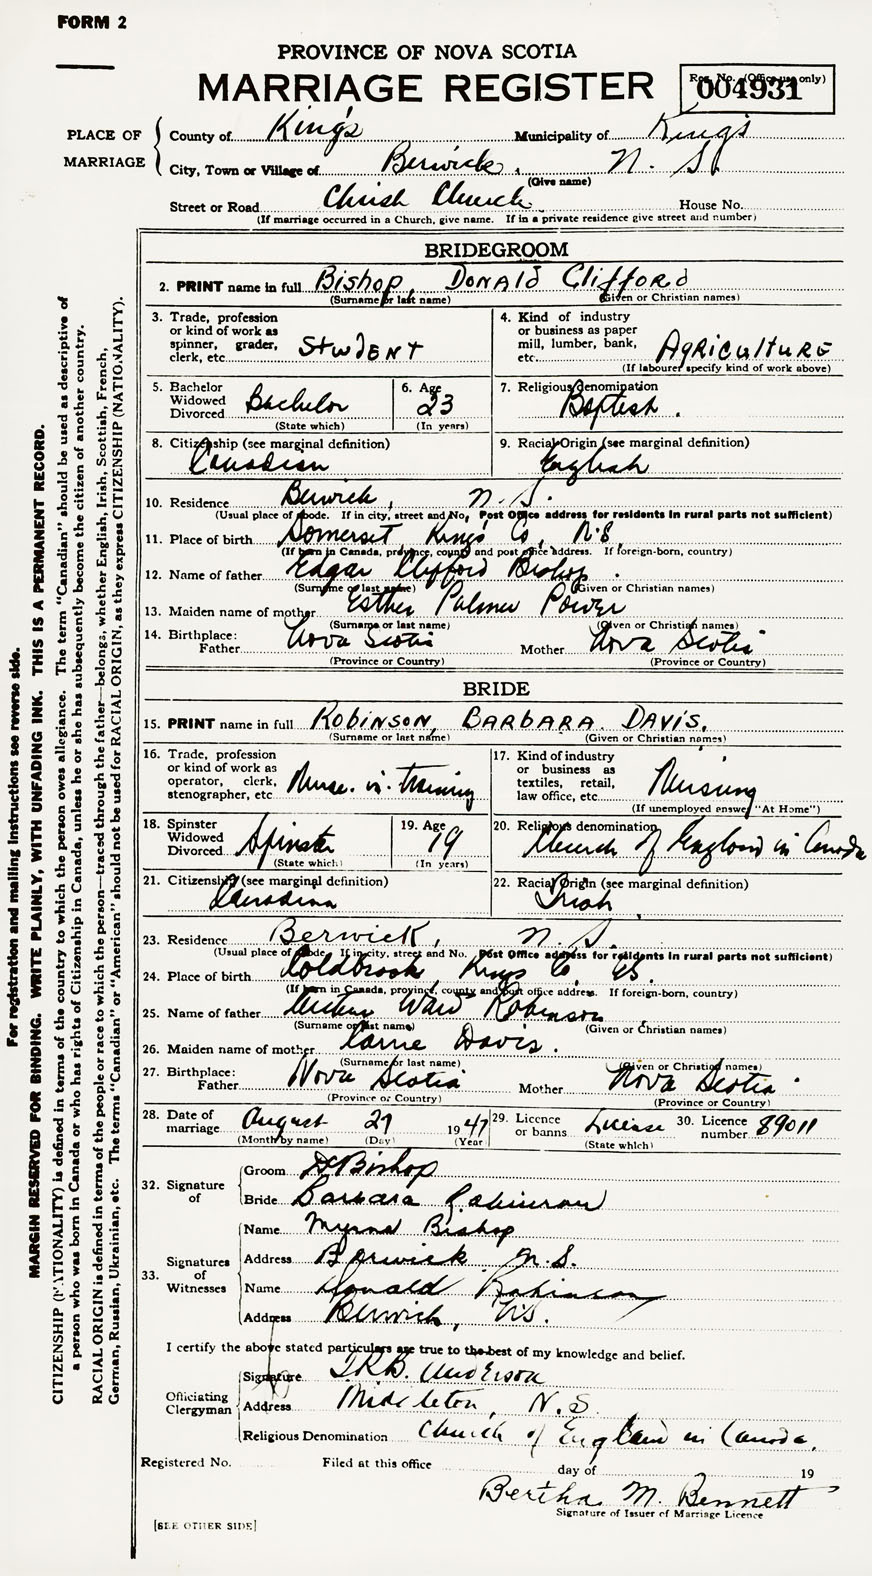 FORM 2
PROVINCE OF NOVA SCOTIA
MARRIAGE REGISTER
Reg. No. (Office use only)
004931
PLACE OF MARRIAGE
County of King's Municipality of Kings
City, Town or Village of Berwick, N. S.
(Give name)
Street or Road Christ Church House No.
(If marriage occurred in a Church, give name. If in a private residence give street and number)
BRIDEGROOM
2. PRINT name in full Bishop, Donald Clifford
(Surname or last name) (Given or Christian names)
3. Trade, profession or kind of work as spinner, grader, clerk, etc. Student
4. Kind of industry or business as paper mill, lumber, bank, etc. Agriculture
(If labourer specify kind of work above)
5. Bachelor Widowed Divorced Bachelor
(State which)
6. Age 23
(In years)
7. Religious denomination Baptist.
8. Citizenship (see marginal definition) Canadian
9. Racial Origin (see marginal definition) English
10. Residence Berwick, N. S.
(Usual place of abode. If in city, street and No. Post Office address for residents in rural parts not sufficient)
11. Place of birth Somerset Kings Co, N.S.
(If born in Canada, province, county and post office address. If foreign-born, country)
12. Name of father Edgar Clifford Bishop.
(Surname or last name) (Given or Christian names)
13. Maiden name of mother Esther Palmer Power
(Surname or last name) (Given or Christian names)
14. Birthplace: Father Nova Scotia Mother Nova Scotia
(Province or Country) (Province or Country)
BRIDE
15. PRINT name in full Robinson, Barbara Davis.
(Surname or last name) (Given or Christian names)
16. Trade, profession or kind of work as operator, clerk, stenographer, etc. Nurse-in-training
17. Kind of industry or business as textiles, retail, law office, etc. Nursing
(If unemployed answer "At Home")
18. Spinster Widowed Divorced Spinster
(State which)
19. Age 19
(In years)
20. Religious denomination Church of England in Canada
21. Citizenship (see marginal definition) Canadian
22. Racial Origin (see marginal definition) Irish
23. Residence Berwick, N. S.
(Usual place of abode. If in city, street and No. Post Office address for residents in rural parts not sufficient)
24. Place of birth Coldbrook, Kings Co, NS.
(If born in Canada, province, county and post office address. If foreign-born, country)
25. Name of father Ward Robinson
(Surname or last name) (Given or Christian names)
26. Maiden name of mother Carrie Davis.
(Surname or last name) (Given or Christian names)
27. Birthplace: Father Nova Scotia Mother Nova Scotia
(Province or Country) (Province or Country)
28. Date of marriage August 29 1947
(Month by name) (Day) (Year)
29. Licence or banns License
(State which)
30. Licence number 89011
32. Signature of
Groom D Bishop
Bride Barbara Robinson
33. Signatures of Witnesses
Name Myrna Bishop
Address Berwick N.S.
Name Donald Robinson
Address Berwick, NS.
I certify the above stated particulars are true to the best of my knowledge and belief.
Officiating Clergyman
Signature Anderson
Address Middleton, N.S.
Religious Denomination Church of England in Canada.
Registered No. Filed at this office day of 19
Bertha M. Bennett
Signature of Issuer of Marriage Licence
[SEE OTHER SIDE]
For registration and mailing instructions see reverse side.
MARGIN RESERVED FOR BINDING. WRITE PLAINLY, WITH UNFADING INK. THIS IS A PERMANENT RECORD.
CITIZENSHIP (NATIONALITY) is defined in terms of the country to which the person owes allegiance. The term "Canadian" should be used as descriptive of
a person who was born in Canada or who has rights of Citizenship in Canada, unless he or she has subsequently become the citizen of another country.
RACIAL ORIGIN is defined in terms of the people or race to which the person—traced through the father—belongs, whether English, Irish, Scottish, French,
German, Russian, Ukrainian, etc. The terms "Canadian" or "American" should not be used for RACIAL ORIGIN, as they express CITIZENSHIP (NATIONALITY).